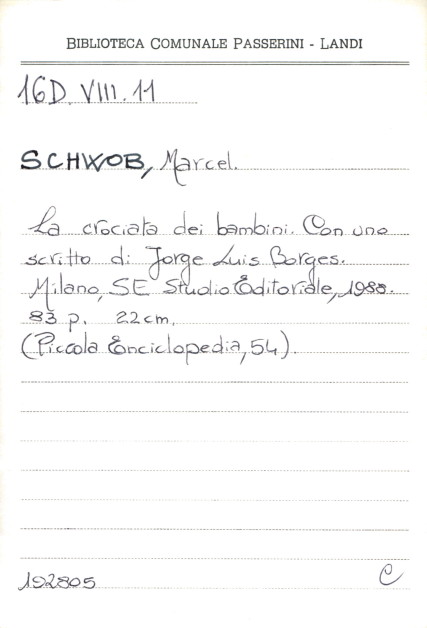 BIBLIOTECA COMUNALE PASSERINI - LANDI
16D.VIII.11
SCHWOB, Marcel.
La crociata dei bambini. Con uno
scritto di Jorge Luis Borges.
Milano, SE Studio Editoriale, 1988.
83 p. 22cm.
(Piccola Enciclopedia, 54).
192805
C